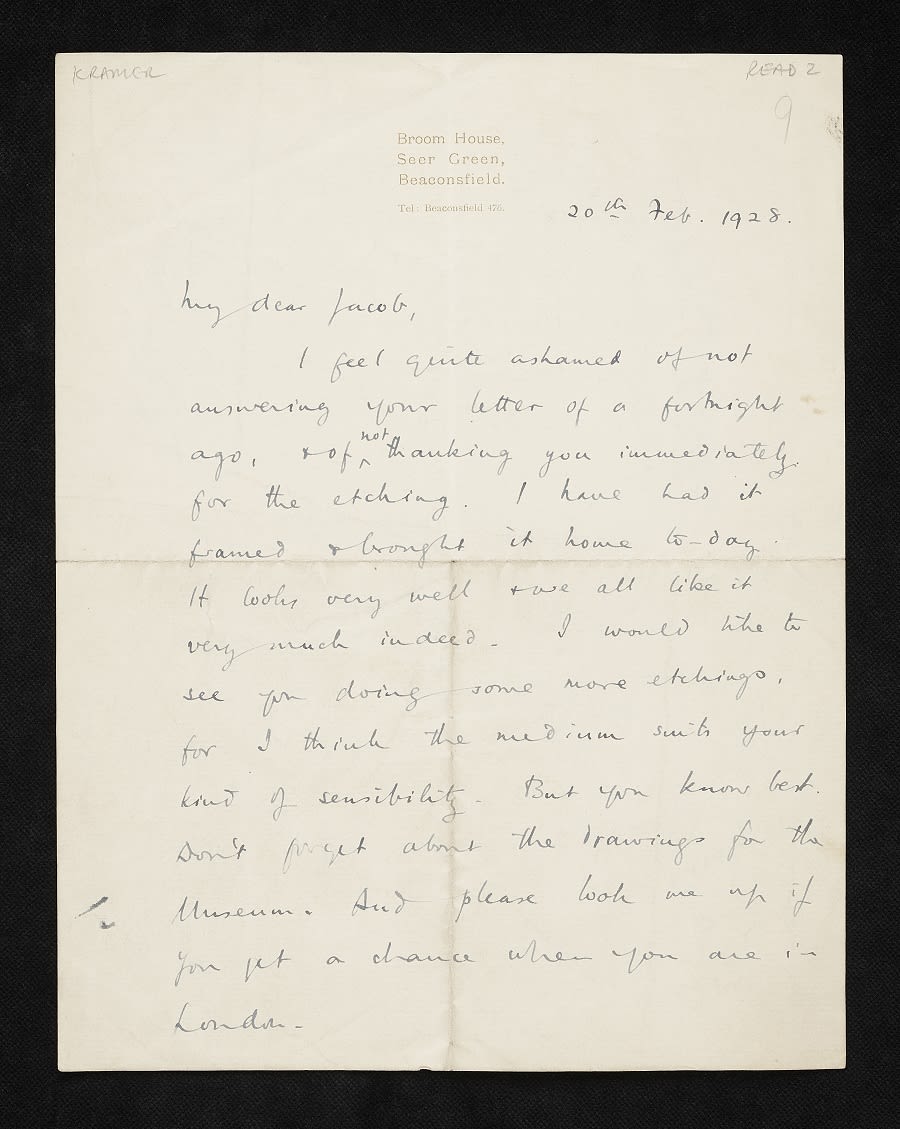 KRAMER
READ 2
9
Broom House,
Seer Green,
Beaconsfield.
Tel: Beaconsfield 476.
20th Feb. 1928.
My dear Jacob,
I feel quite ashamed of not
answering your letter of a fortnight
ago, & of not thanking you immediately
for the etching. I have had it
framed & brought it home to-day.
It looks very well & we all like it
very much indeed. I would like to
see you doing some more etchings,
for I think the medium suits your
kind of sensibility. But you know best.
Don't forget about the drawings for the
Museum. And please look me up if
you get a chance when you are in
London.